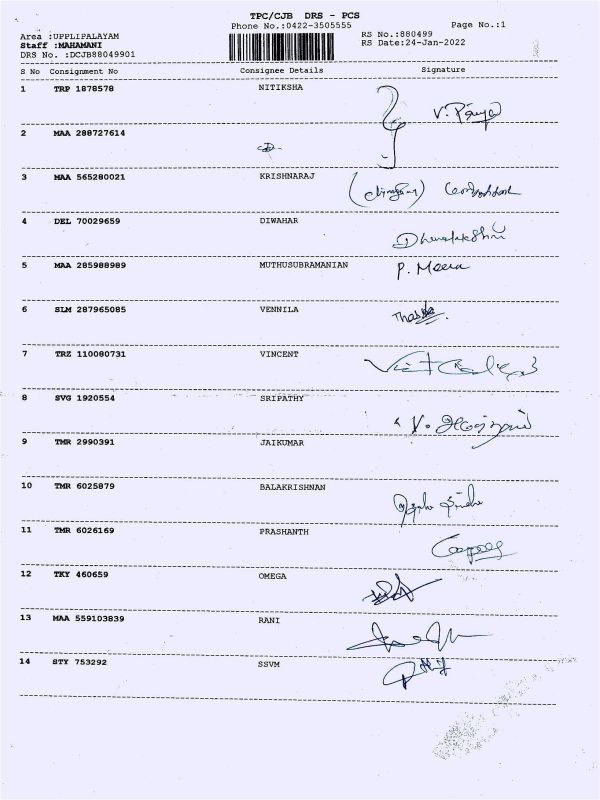 TPC/CJB DRS - PCS
Phone No.:0422-3505555 Page No.:1
Area :UPPLIPALAYAM RS No.:880499
Staff :MAHAMANI RS Date:24-Jan-2022
DRS No. :DCJB88049901
S No Consignment No Consignee Details Signature
1 TRP 1878578 NITIKSHA
V. Priya
2 MAA 288727614
3 MAA 565280021 KRISHNARAJ
4 DEL 70029659 DIWAHAR
5 MAA 285988989 MUTHUSUBRAMANIAN P. Meera
6 SLM 287965085 VENNILA
7 TRZ 110080731 VINCENT
8 SVG 1920554 SRIPATHY
9 TMR 2990391 JAIKUMAR
10 TMR 6025879 BALAKRISHNAN
11 TMR 6026169 PRASHANTH
12 TKY 460659 OMEGA
13 MAA 559103839 RANI
14 STY 753292 SSVM